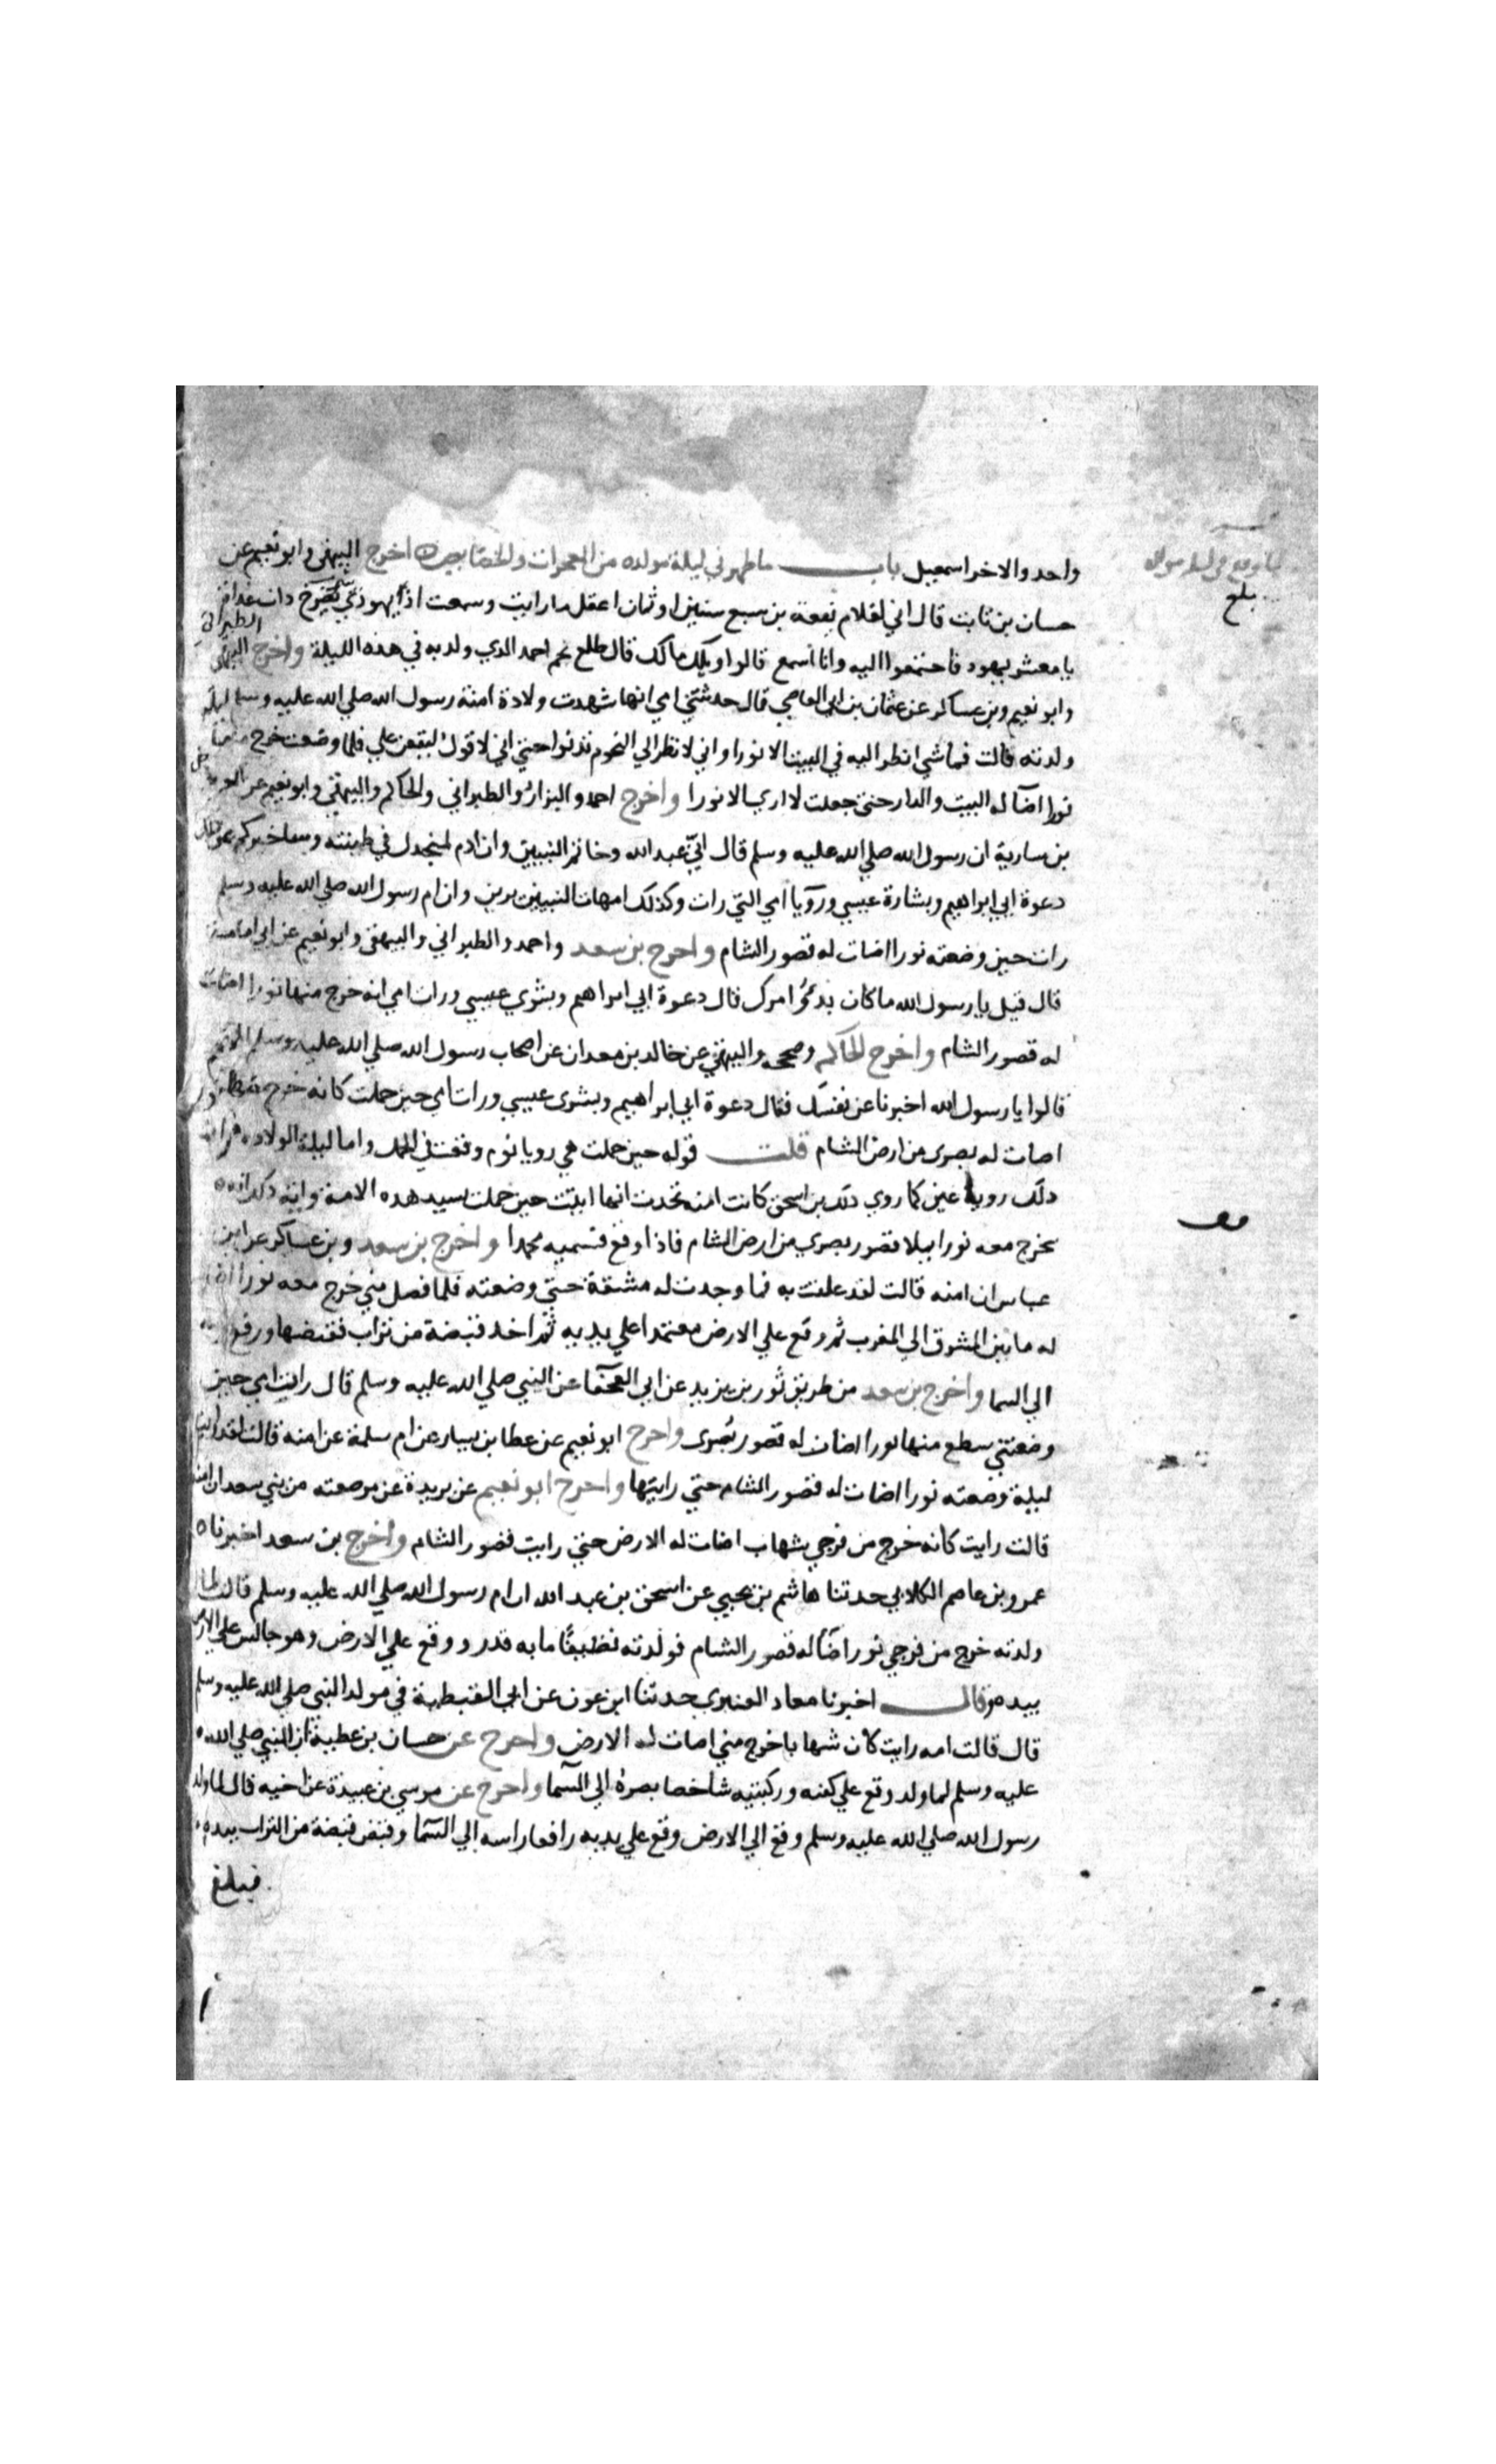 واحد والاخر اسمعيل باب ما ظهر في ليلة مولده من المعجزات والخصايص اخرج البيهقي وابو نعيم عن
حسان بن ثابت قال اني لغلام يفعة بن سبع سنين او ثمان اعقل ما رايت وسمعت اذا يهودي يصرخ ذات غداة
يا معشر يهود فاجتمعوا اليه وانا اسمع قالوا ويلك مالك قال طلع نجم احمد الدي ولد به في هذه الليلة واخرج البيهقي
الطبراني
وابو نعيم وبن عساكر عن عثمان بن ابي العاصي قال حدثتني امي انها شهدت ولادة امنة رسول الله صلي الله عليه وسلم ليلة
ولدته قالت فما شي انظر اليه في البيت الا نورا واني لانظر الي النجوم تدنوا حتي اني لاقول ليقعن علي فلما وضعت خرج منها
نورا اضآ له البيت والدار حتي جعلت لا اري الا نورا واخرج احمد والبزار والطبراني والحاكم والبيهقي وابو نعيم عن العرباض
بن سارية ان رسول الله صلي الله عليه وسلم قال اني عبد الله وخاتم النبيين وان ادم لمنجدل في طينته وساخبركم عن ذلك
دعوة ابي ابراهيم وبشارة عيسي ورؤيا امي التي رات وكذلك امهات النبيين يرين وان ام رسول الله صلي الله عليه وسلم
رات حين وضعته نورا اضات له قصور الشام واخرج بن سعد واحمد والطبراني والبيهقي وابو نعيم عن ابي امامة
قال قيل يا رسول الله ما كان بدؤ امرك قال دعوة ابي ابراهيم وبشري عيسي ورات امي انه خرج منها نورا اضات
له قصور الشام واخرج الحاكم وصححه والبيهقي عن خالد بن معدان عن اصحاب رسول الله صلي الله عليه وسلم انهم
قالوا يا رسول الله اخبرنا عن نفسك فقال دعوة ابي ابراهيم وبشرى عيسي ورات امي حين حملت كانه خرج منها نور
اضات له بصرى من ارض الشام قلت قوله حين حملت هي رويا نوم وقعت في الحمل واما ليلة الولادة فرات
ذلك روية عين كما روي ذلك بن اسحق كانت امنه تحدث انها اتيت حين حملت بسيد هده الامة واية ذلك انه
يخرج معه نورا يملا قصور بصري من ارض الشام فاذا وقع فسميه محمدا واخرج بن سعد وبن عساكر عن ابن
عباس ان امنه قالت لقد علقت به فما وجدت له مشقة حتي وضعته فلما فصل مني خرج معه نورا اضا
له ما بين المشرق الي المغرب ثم وقع علي الارض معتمدا علي يديه ثم اخد قبضة من تراب فقبضها ورفع راسه
الي السما واخرج بن سعد من طريق ثور بن يزيد عن ابي العجفا عن النبي صلي الله عليه وسلم قال رات امي حين
وضعتني سطع منها نورا اضات له قصور بصرى واخرج ابو نعيم عن عطا بن يسار عن ام سلمة عن امنه قالت لقد رايت
ليلة وضعته نورا اضات له قصور الشام حتي رايتها واخرج ابو نعيم عن بريدة عن مرضعته من بني سعد ان امنه
قالت رايت كانه خرج من فرجي شهاب اضات له الارض حتي رايت قصور الشام واخرج بن سعد اخبرنا
عمرو بن عاصم الكلابي حدثنا هاشم بن يحيي عن اسحق بن عبد الله ان ام رسول الله صلي الله عليه وسلم قالت لما
ولدته خرج من فرجي نور اضآ له قصور الشام فولدته نظيفًا ما به قدر ووقع علي الارض وهو جالس علي الارض
بيده وقال اخبرنا معاد العنبري حدثنا ابن عون عن ابن القبطية في مولد النبي صلي الله عليه وسلم
قال قالت امه رايت كان شهابا خرج مني اضات له الارض واخرج عن حسان بن عطية ان النبي صلي الله
عليه وسلم لما ولد وقع علي كفيه وركبتيه شاخصا بصره الي السما واخرج عن موسي بن عبيدة عن اخيه قال لما ولد
رسول الله صلي الله عليه وسلم وقع الي الارض وقع علي يديه رافعا راسه الي السما وقبض قبضة من التراب بيده
فبلغ
بلغ